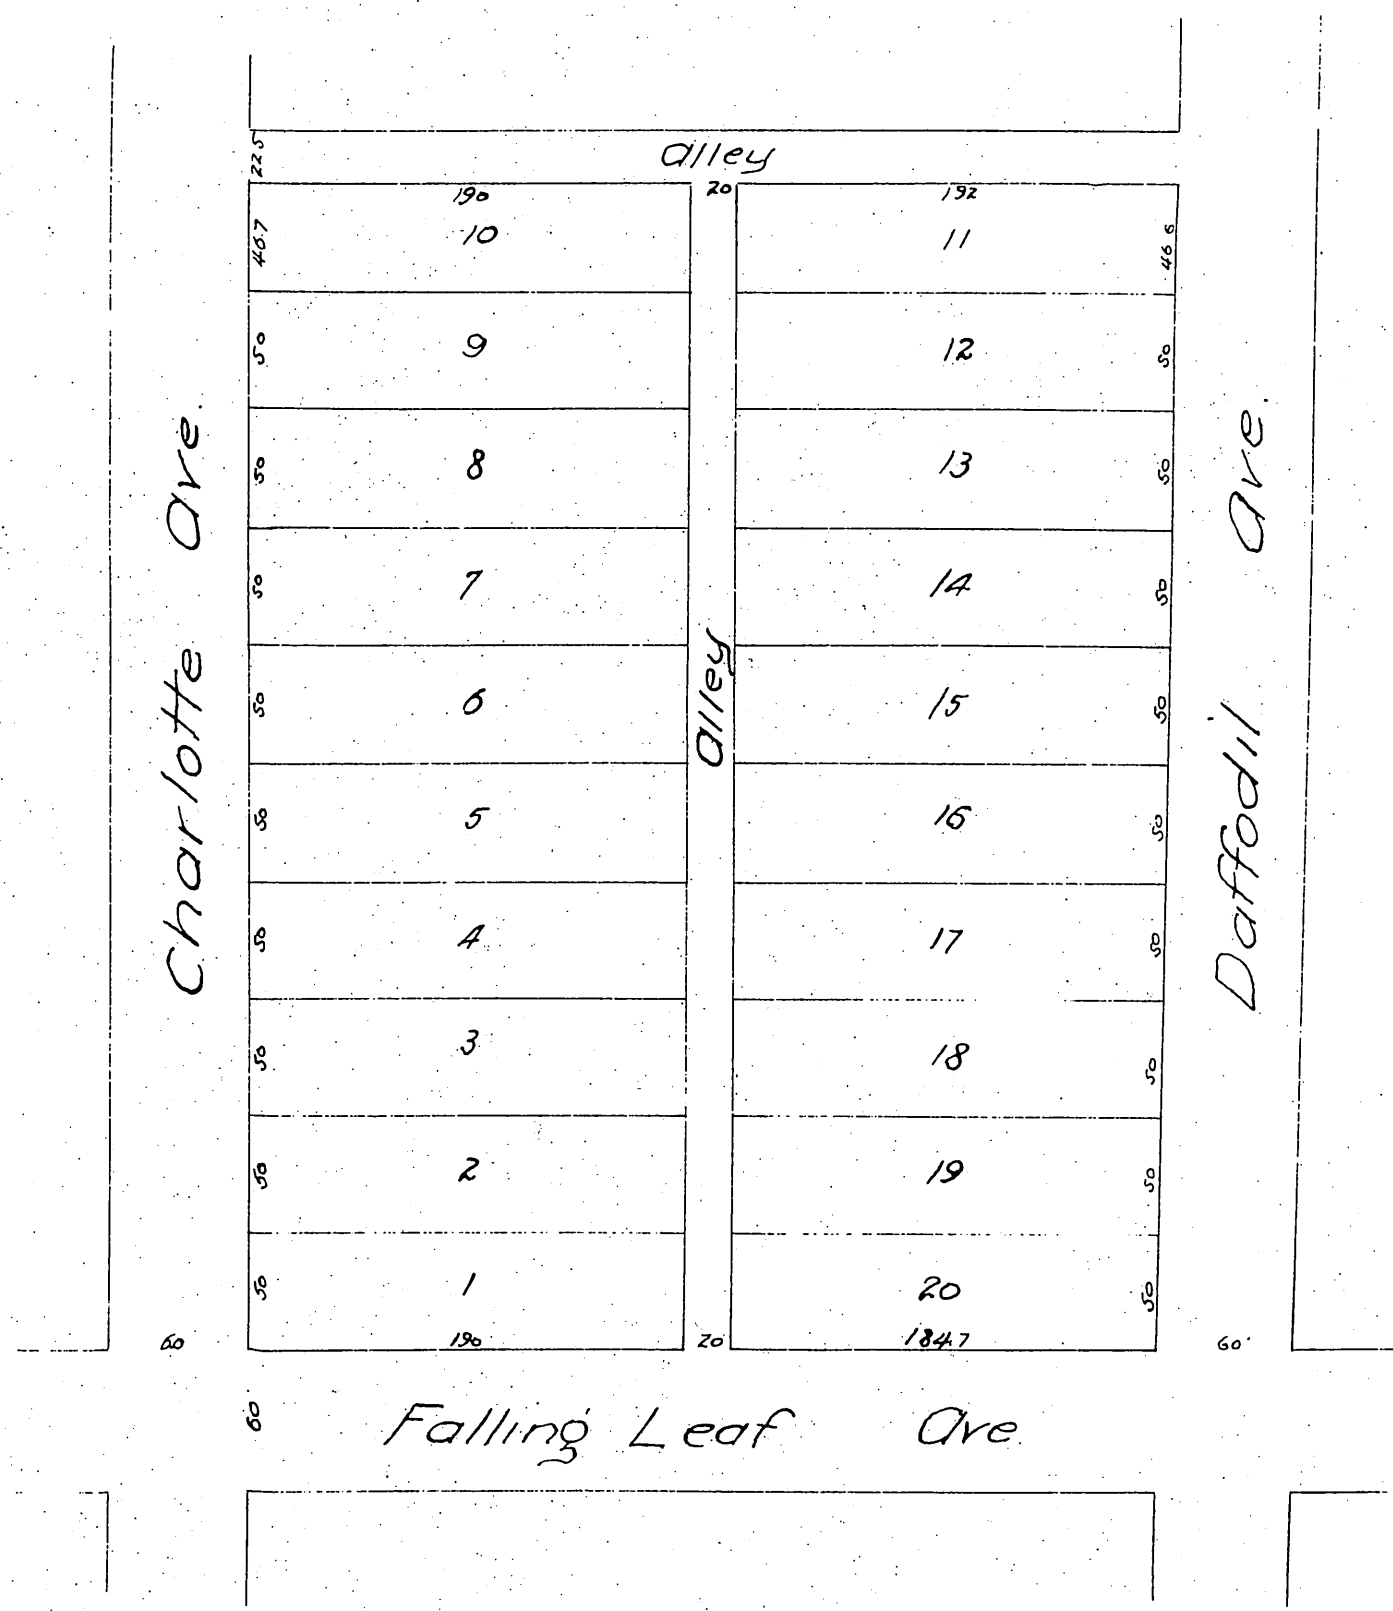 alley
22.5
190
20
192
46.7
10
11
46.6
50
9
12
50
50
8
13
50
50
7
14
50
50
6
15
50
50
5
16
50
50
4
17
50
50
3
18
50
50
2
19
50
50
1
20
50
60
190
20
184.7
60
Charlotte Ave.
Alley
Daffodil Ave.
60
Falling Leaf Ave.